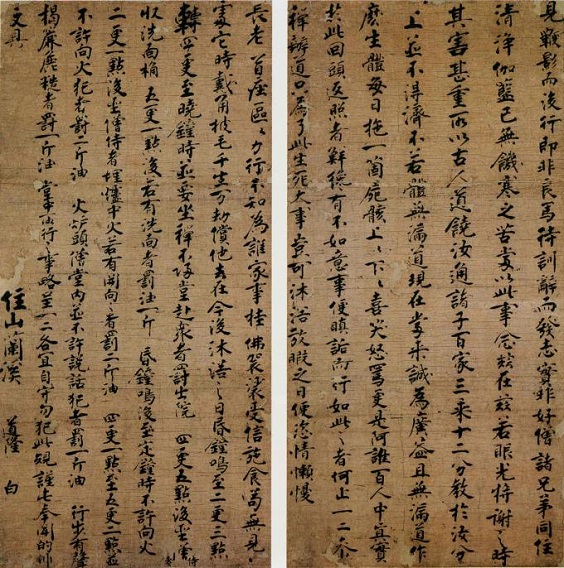 見鞭影而後行即非良馬待訓辭而發志實非好僧諸兄弟同住
清淨伽藍已無饑寒之苦當以此事念茲在茲若眼光將謝之時
其害甚重所以古人道饒汝通諸子百家三乘十二分教於汝分
上並不得濟不若體無漏道現在當來誠為廣益且無漏道作
麼生體每日拖一箇屍骸上々下々喜笑怒罵更是阿誰百人中真實
於此回頭返照者鮮緣有不如意事便嗔詬而行如此之者何止一二參
禪辨道只為了此生死大事豈可沐浴放暇之日便恣情懶慢
長老首座區々力行不知為誰家事挂佛袈裟受信施食苟無見
處它時戴角披毛千生万劫償他去在今後沐浴之日昏鐘鳴至二更三點
轉 四更至曉鐘時並要坐禪不歸堂赴衆者罰出院 四更五點後
收洗面桶 五更一點後若有洗面者罰油一斤 昏鐘鳴後至定鐘時不許向火
二更一點後坐僧侍者埋爐中火若有開向之者罰二斤油 四更一點至五更二點並
不許向火犯者罰一斤油 火爐頭僧堂內並不許說話犯者罰一斤油 行步有聲
揭簾麁糙者罰一斤油 山行事略呈一二各宜自守勿犯此規謹此奉聞
文具
住山蘭溪 道隆 白